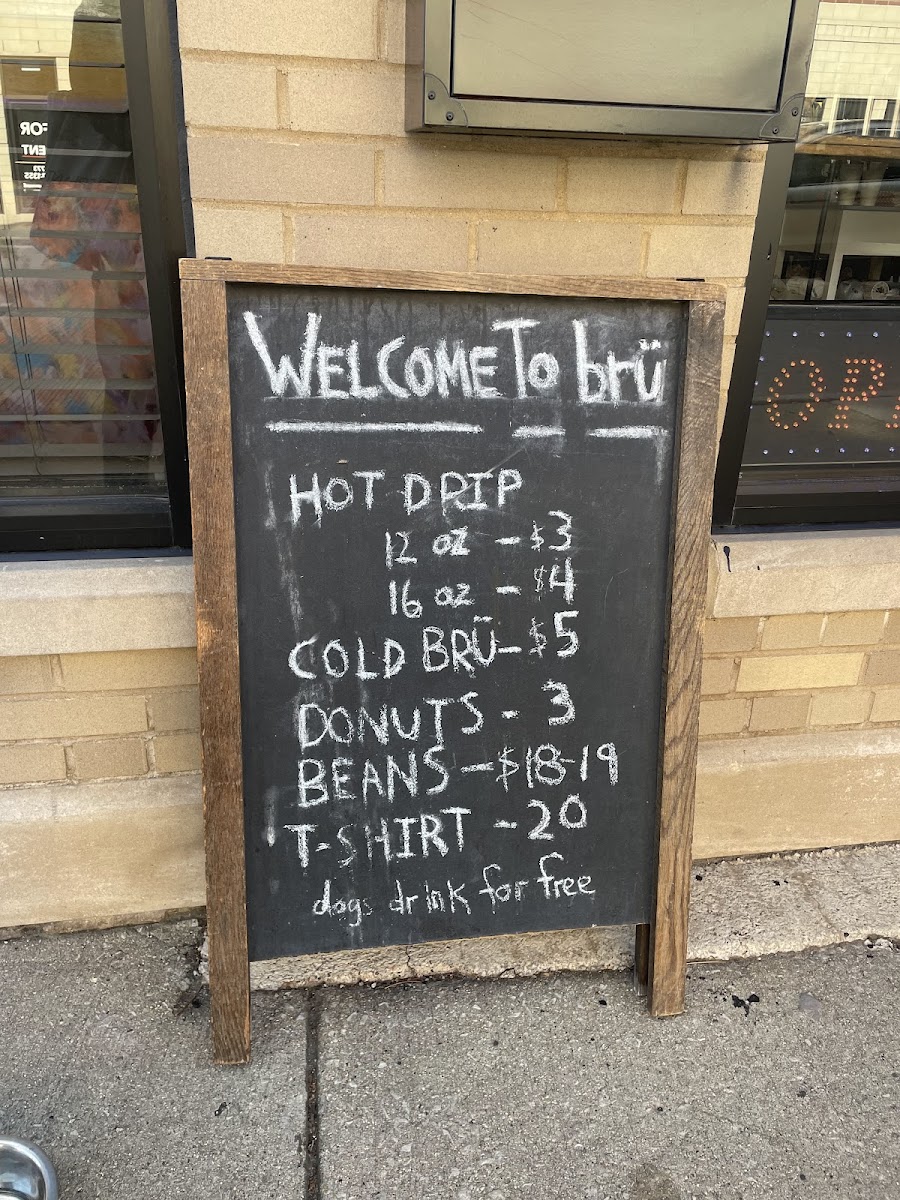 WELCOME TO brü
HOT DRIP
12 oz - $3
16 oz - $4
COLD BRÜ - $5
DONUTS - 3
BEANS - $18-19
T-SHIRT - 20
dogs drink for free
FOR